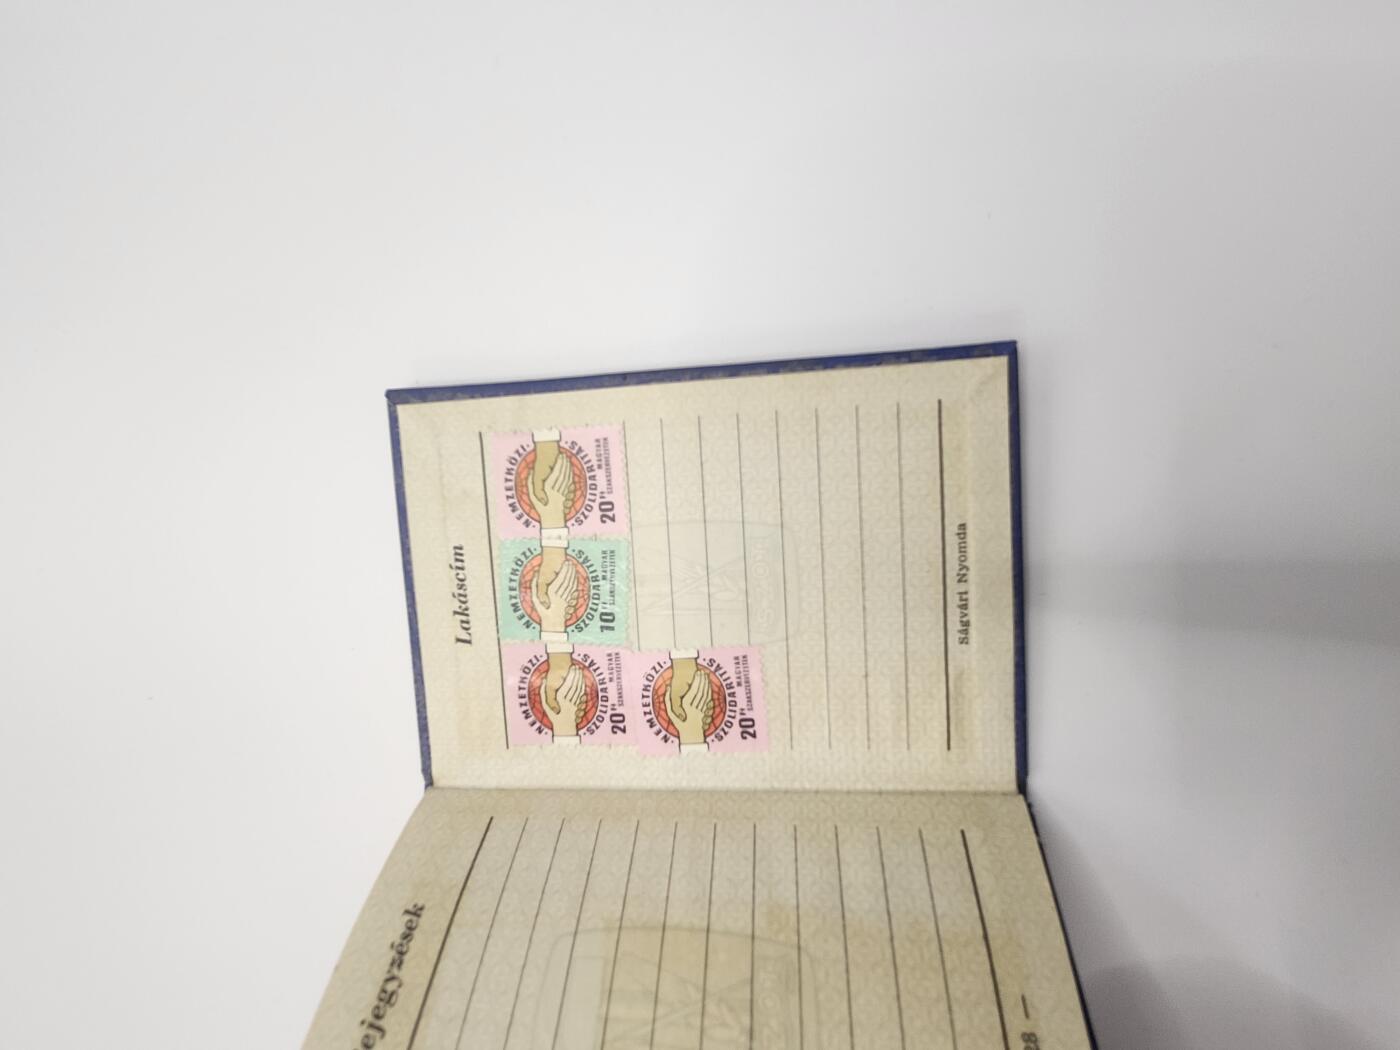 Bejegyzések
28 —
Lakáscím
· NEMZETKÖZI ·
· SZOLIDARITÁS ·
20 Ft MAGYAR
SZAKSZERVEZETEK
· NEMZETKÖZI ·
· SZOLIDARITÁS ·
10 Ft MAGYAR
SZAKSZERVEZETEK
· NEMZETKÖZI ·
· SZOLIDARITÁS ·
20 Ft MAGYAR
SZAKSZERVEZETEK
· NEMZETKÖZI ·
· SZOLIDARITÁS ·
20 Ft MAGYAR
SZAKSZERVEZETEK
Ságvári Nyomda